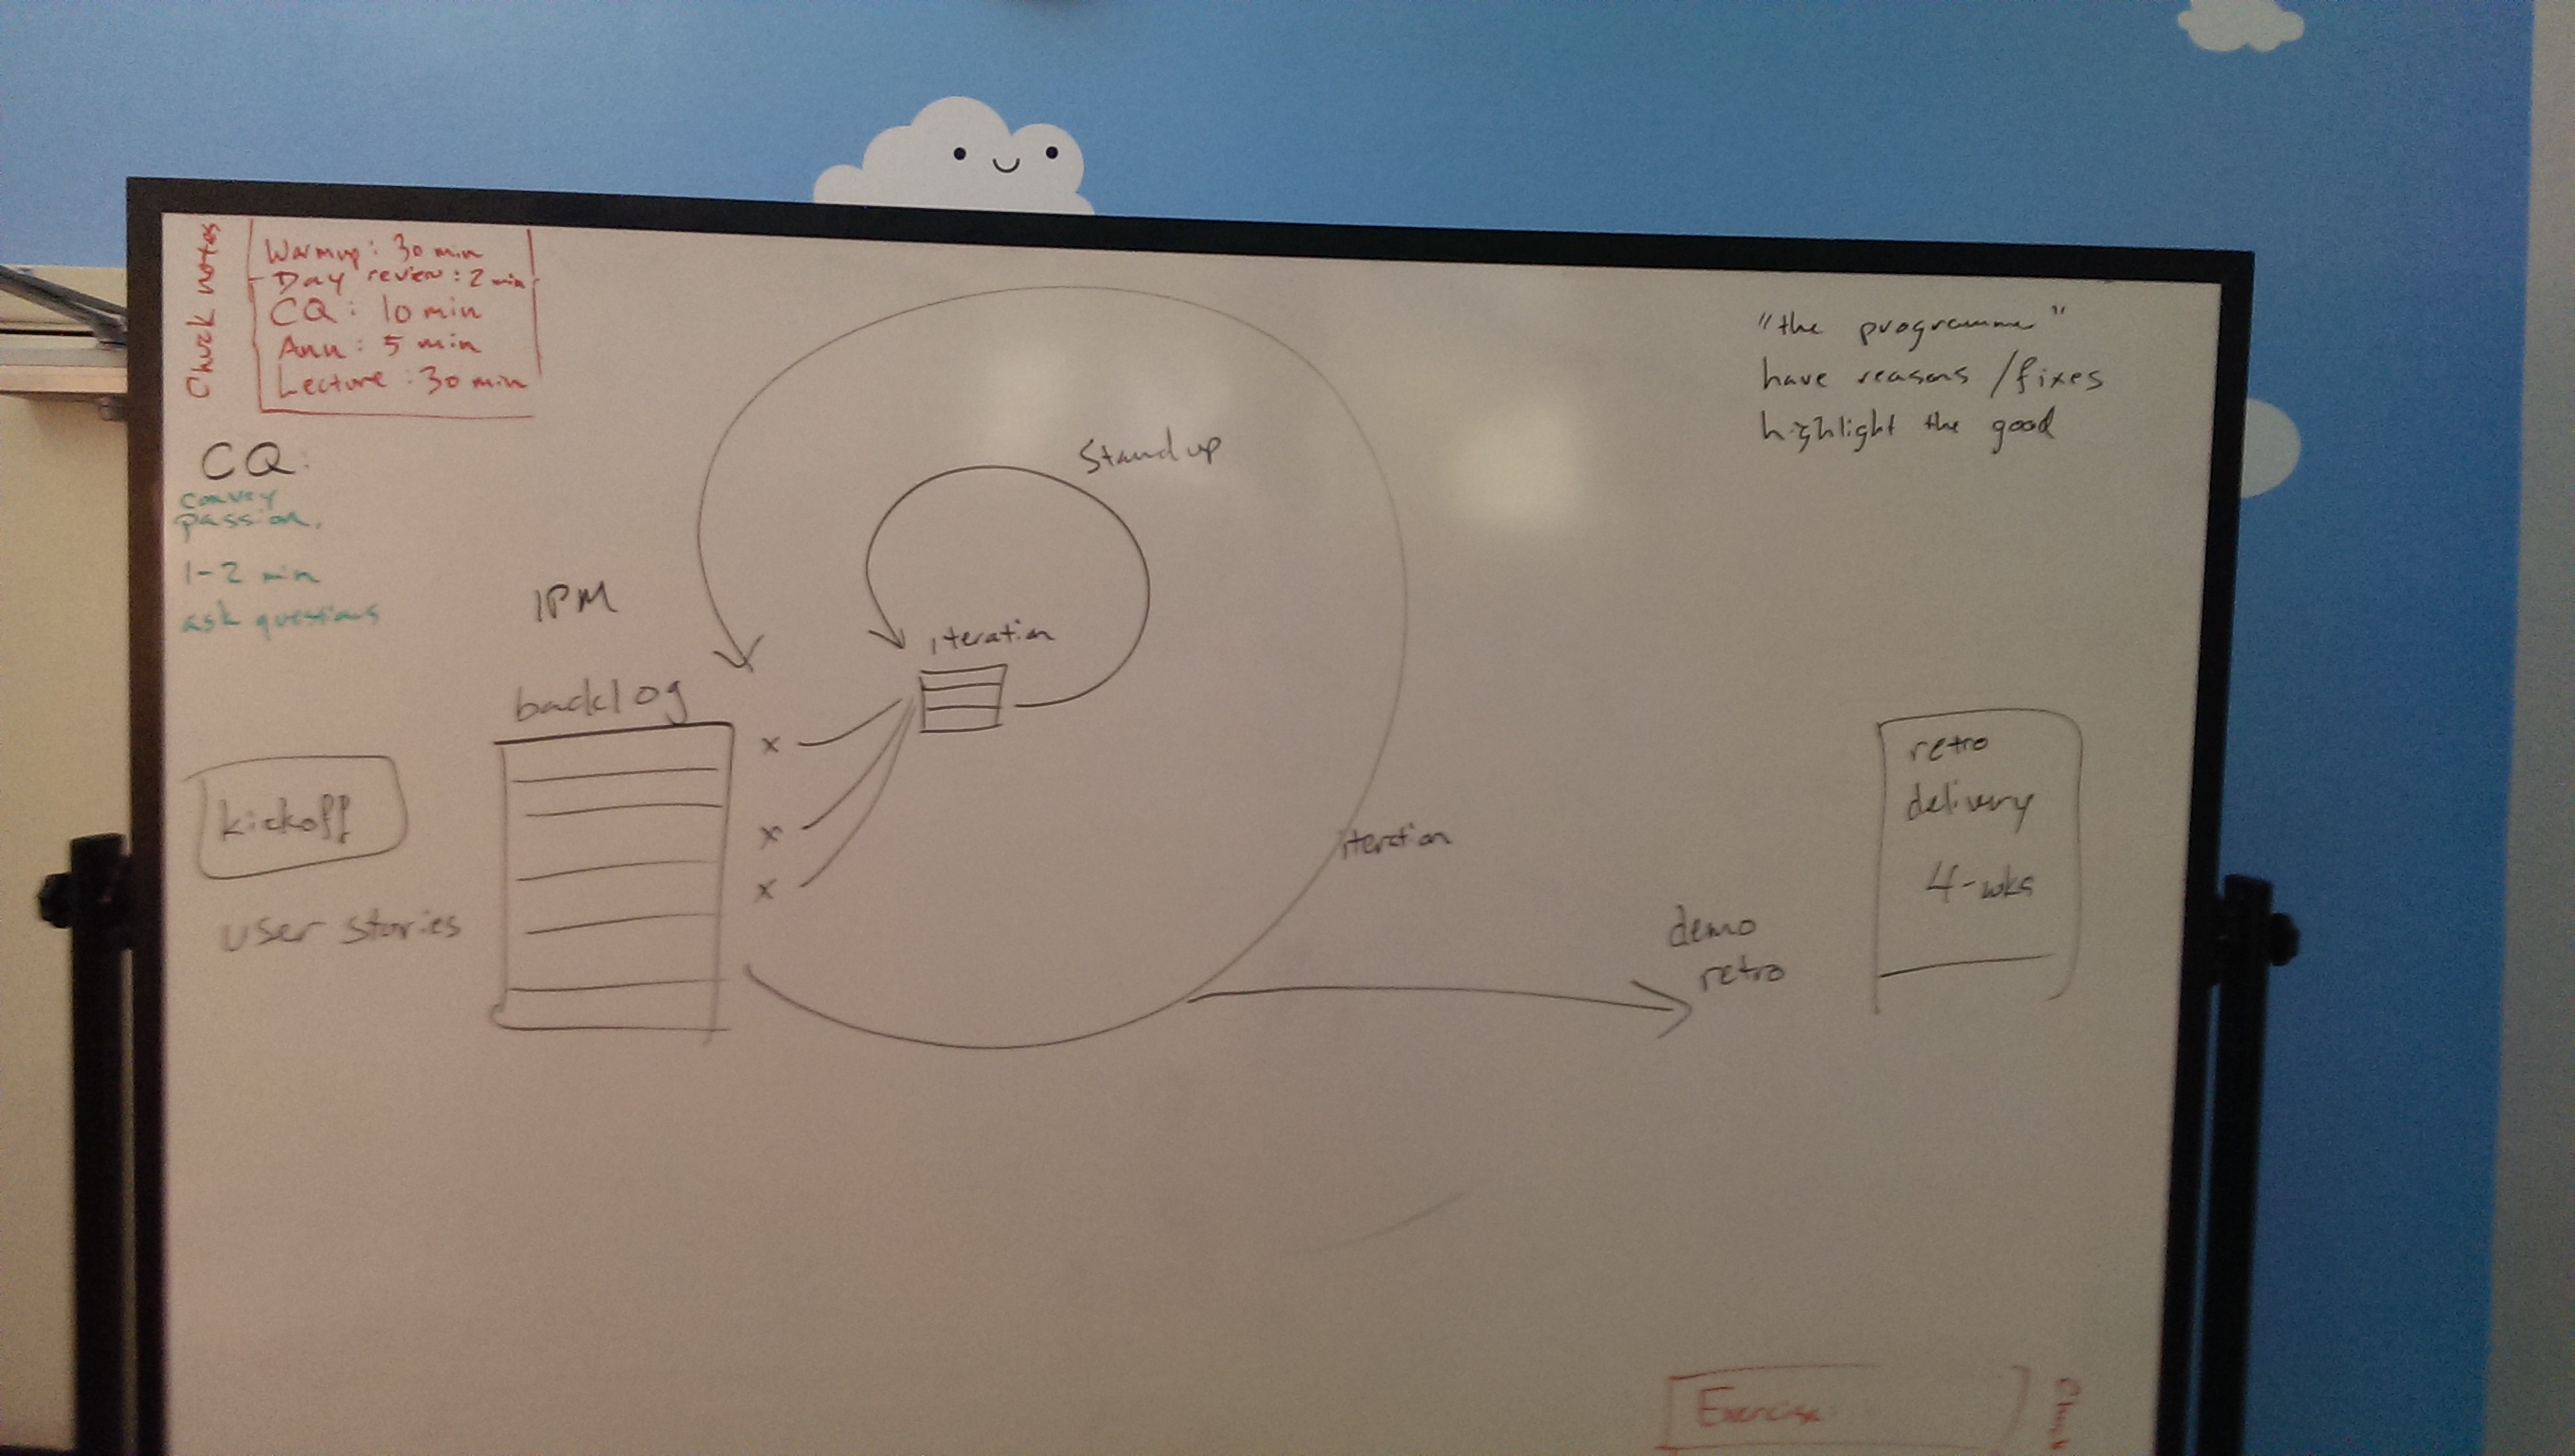 Chuck notes
Warmup: 30 min
Day review: 2 min
CQ: 10 min
Ann: 5 min
Lecture: 30 min
CQ:
convey
passion.
1-2 min
ask questions
"the programme"
have reasons/fixes
highlight the good
Standup
IPM
iteration
backlog
x
x
x
kickoff
user stories
iteration
demo
retro
retro
delivery
4-wks
Exercise